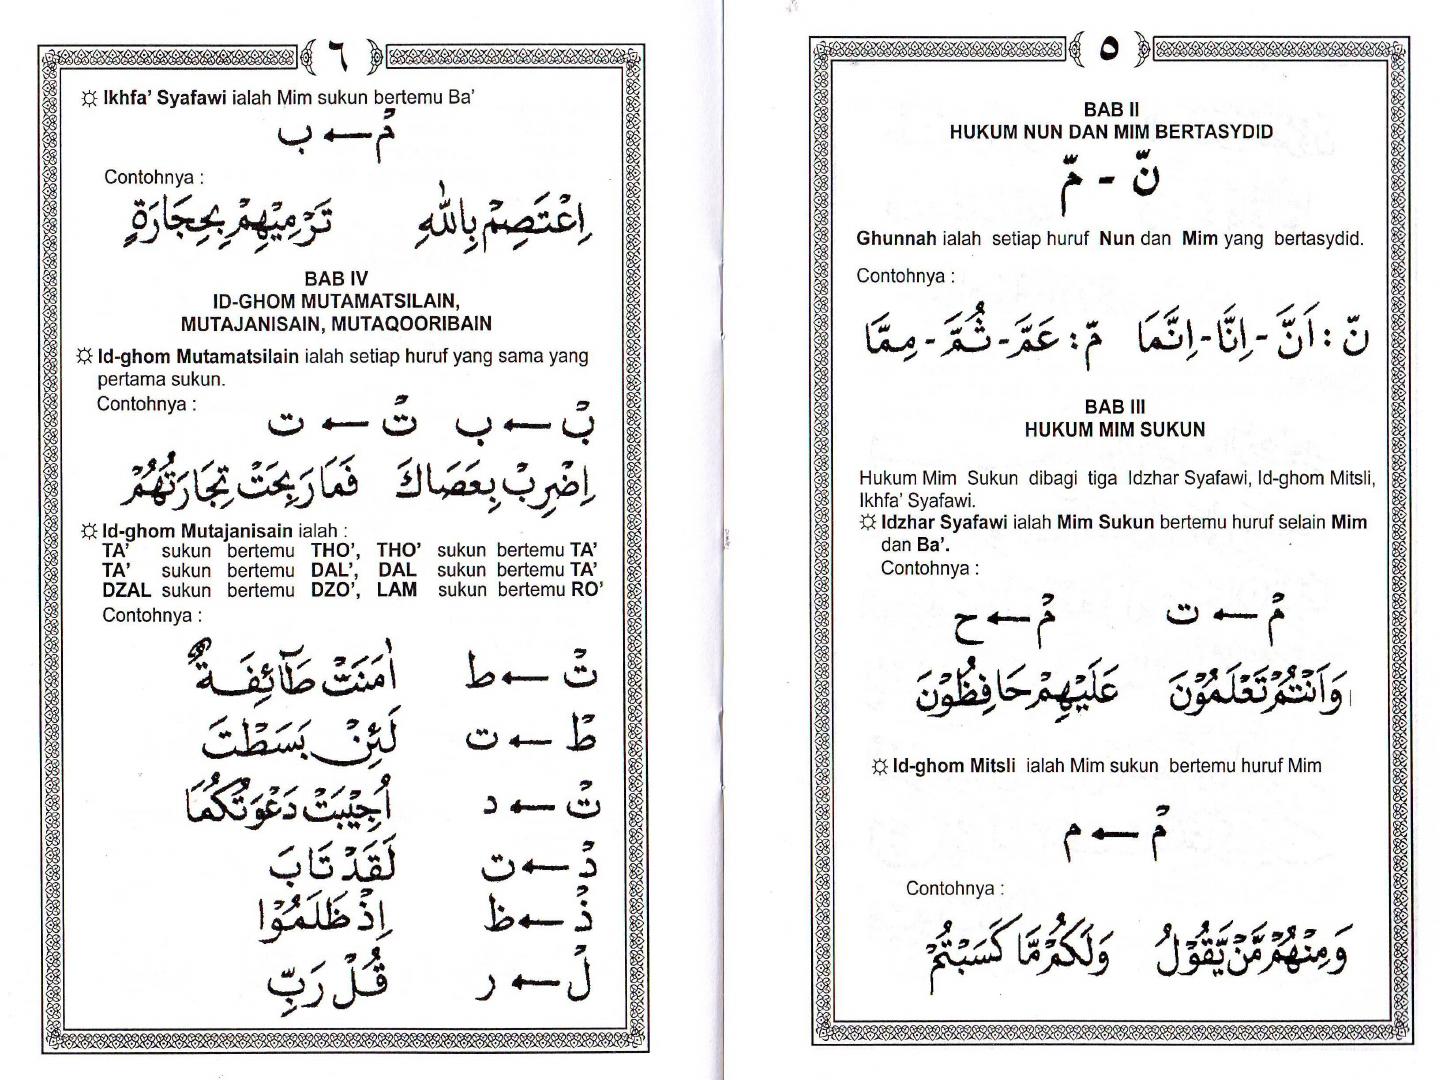 ٥
BAB II
HUKUM NUN DAN MIM BERTASYDID
نّ - مّ
Ghunnah ialah setiap huruf Nun dan Mim yang bertasydid.
Contohnya :
نّ : اَنَّ - اِنَّا - اِنَّمَا مّ : عَمَّ - ثُمَّ - مِمَّا
BAB III
HUKUM MIM SUKUN
Hukum Mim Sukun dibagi tiga Idzhar Syafawi, Id-ghom Mitsli,
Ikhfa' Syafawi.
☼ Idzhar Syafawi ialah Mim Sukun bertemu huruf selain Mim
dan Ba'.
Contohnya :
مْ ← ت مْ ← ح
وَاَنْتُمْ تَعْلَمُوْنَ عَلَيْهِمْ حَافِظُوْنَ
☼ Id-ghom Mitsli ialah Mim sukun bertemu huruf Mim
مْ ← م
Contohnya :
وَمِنْهُمْ مَّنْ يَّقُوْلُ وَلَكُمْ مَّا كَسَبْتُمْ
٦
☼ Ikhfa' Syafawi ialah Mim sukun bertemu Ba'
مْ ← ب
Contohnya :
اِعْتَصِمْ بِاللهِ تَرْمِيْهِمْ بِحِجَارَةٍ
BAB IV
ID-GHOM MUTAMATSILAIN,
MUTAJANISAIN, MUTAQOORIBAIN
☼ Id-ghom Mutamatsilain ialah setiap huruf yang sama yang
pertama sukun.
Contohnya :
بْ ← ب تْ ← ت
اِضْرِبْ بِعَصَاكَ فَمَا رَبِحَتْ تِجَارَتُهُمْ
☼ Id-ghom Mutajanisain ialah :
TA' sukun bertemu THO', THO' sukun bertemu TA'
TA' sukun bertemu DAL', DAL sukun bertemu TA'
DZAL sukun bertemu DZO', LAM sukun bertemu RO'
Contohnya :
تْ ← ط اٰمَنَتْ طَآئِفَةٌ
طْ ← ت لَئِنْ بَسَطْتَ
تْ ← د اُجِيْبَتْ دَعْوَتُكُمَا
دْ ← ت لَقَدْ تَابَ
ذْ ← ظ اِذْ ظَلَمُوْا
لْ ← ر قُلْ رَبِّ